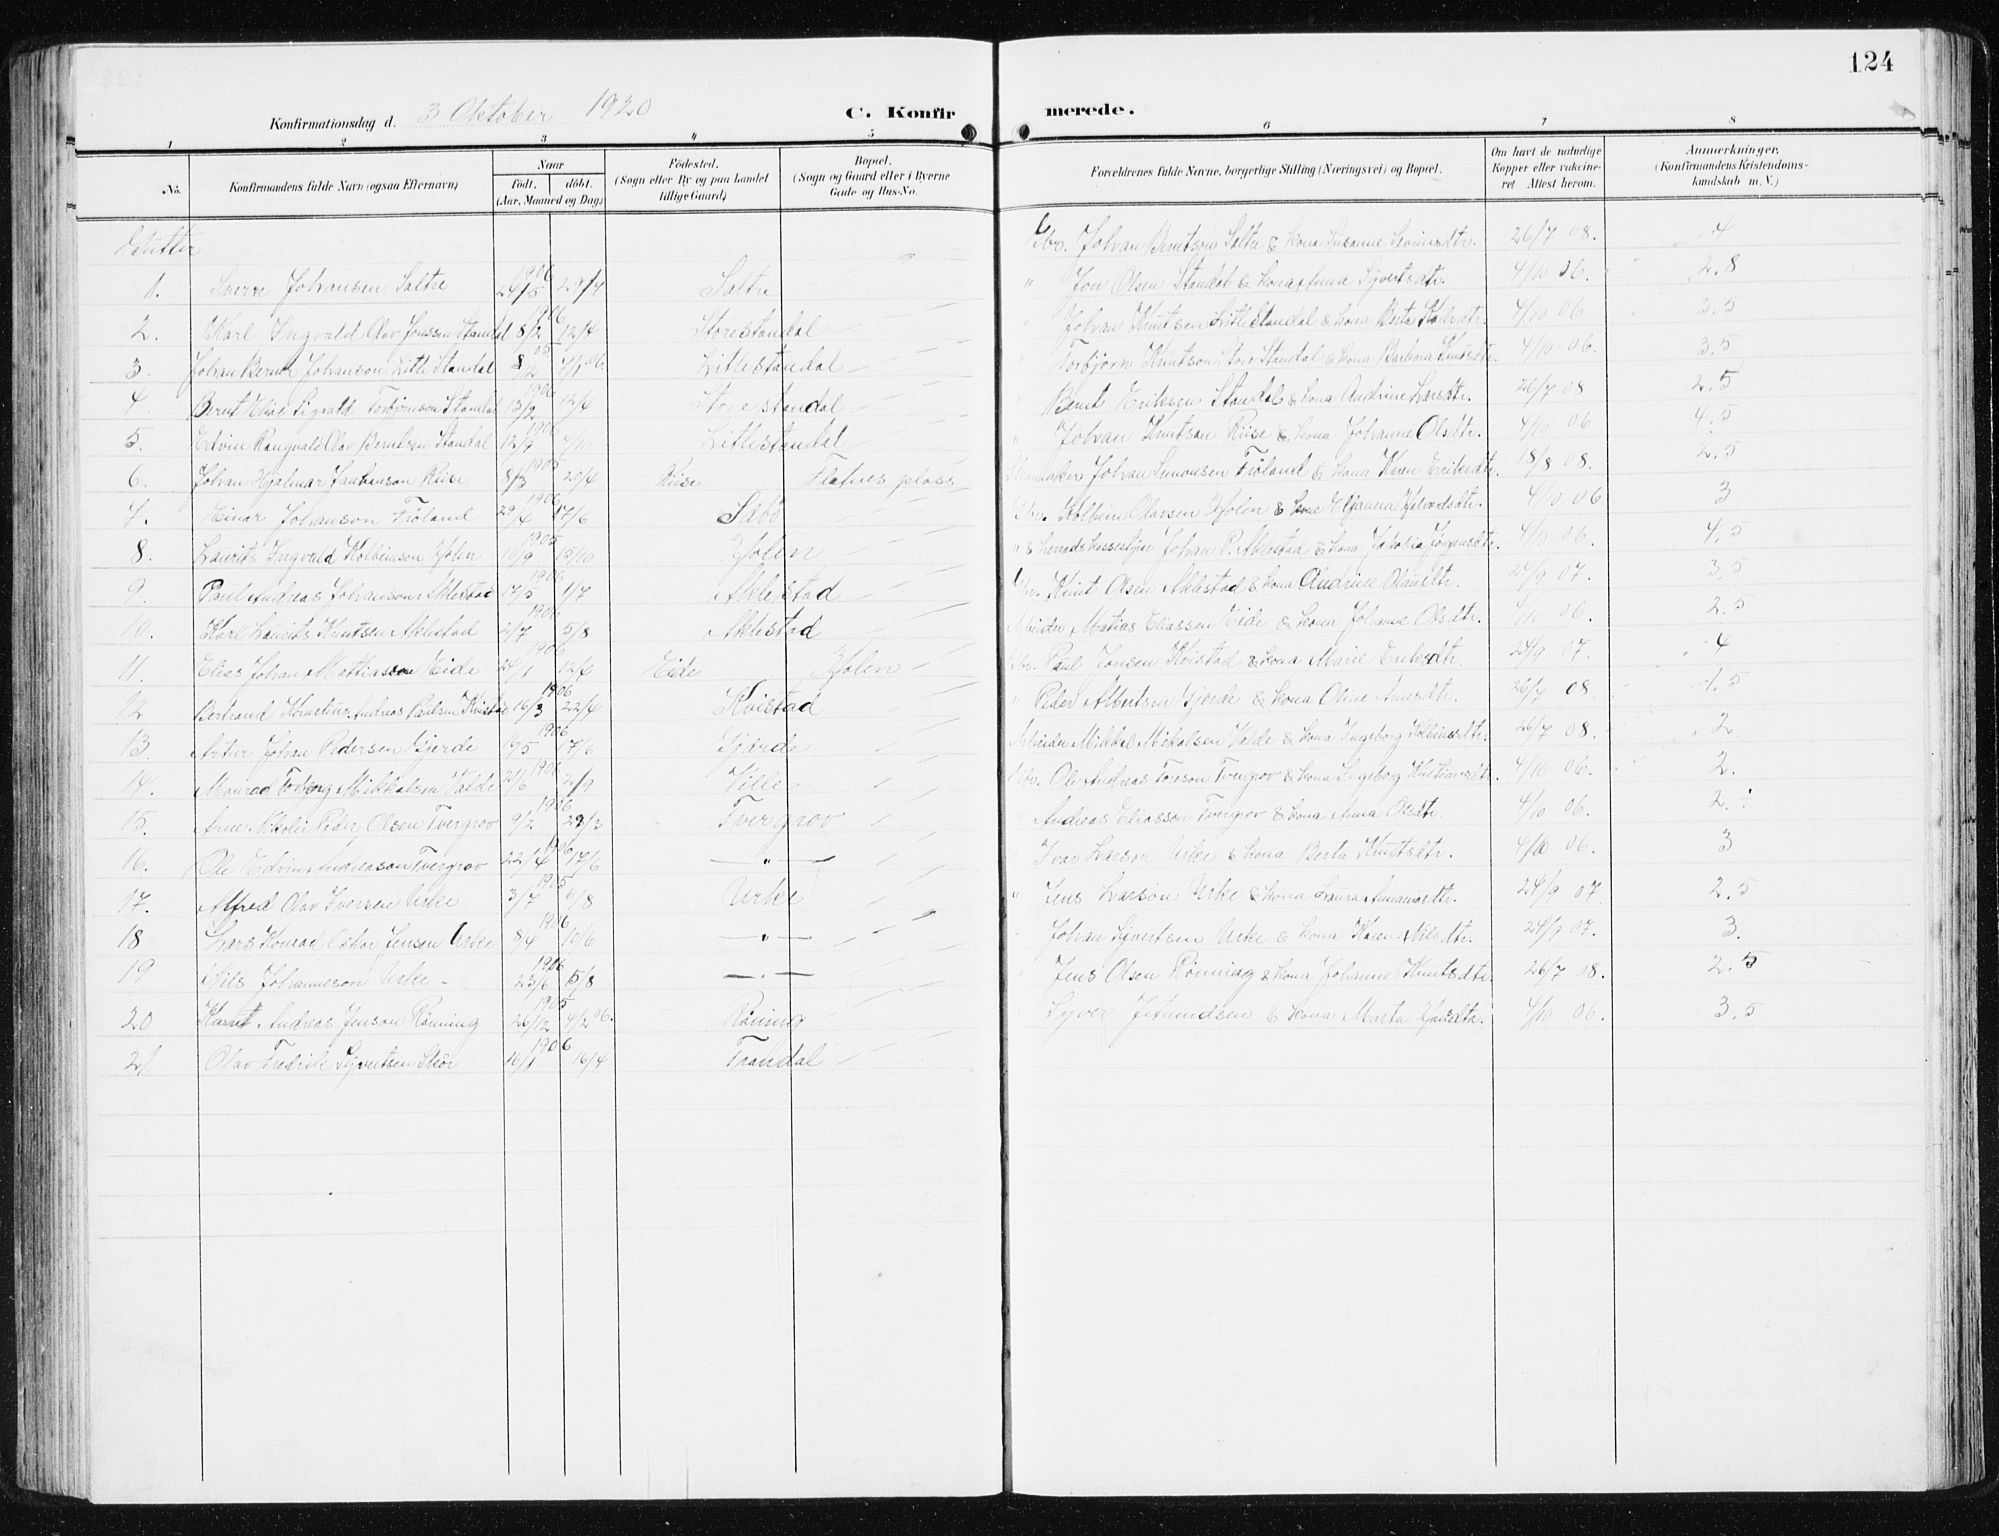 124
Konfirmationsdag d. 3 Oktober 1920 C. Konfirmerede.
1 2 3 4 5 6 7 8
No. Konfirmandens fulde Navn (ogsaa Efternavn) Naar födt. döbt. (Aar, Maaned og Dag) Födested. (Sogn eller By og paa Landet tillige Gaard) Bopæl. (Sogn og Gaard eller i Byerne Gade og Hus-No. Forældrenes fulde Navne, borgerlige Stilling (Næringsvei) og Bopæl. Om havt de naturlige Kopper eller vakcineret Attest herom. Anmærkninger. (Konfirmandens Kristendomskundskab m. V.)
Gutter
1. Sverre Johansen Saltre 1906 24/5 29/7 Saltre Gbr. Johan Berntson Saltre & kona Susanne 26/7 08. 4
2. Karl Ingvald Olav Jonssen Standal 1906 8/2 12/4 Storestandal " Jon Olsen Standal & kona Anna Syvertsdtr. 4/10 06. 2.8
3. Johan Bernt Johanson Litle Standal 05 8/12 7/1 06. Litlestandal " Johan Knutsen Litlestandal & kona Berta 4/10 06 3.5
4. Bernt Elias Sigvald Torbjörnson Standal 1906 13/2 12/4 Storestandal " Torbjörn Knutson Store Standal & kona Barbara Knutsdtr. 4/10 06. 3.5
5. Edvin Rangvald Olav Berntsen Standal 1906 12/9 4/10 Litlestandal " Bernt Eriksen Standal & kona Andrine Larsdtr. 26/7 08 2.5
6. Johan Hjalmar Johanson Riise 1905 8/3 20/4 Riise Flatnes plass " Johan Knutson Riise & kona Johanne Olsdtr. 4/10 06 4.5
7. Einar Johanson Fröland 1906 29/4 17/6 Säbö Johan Simonsen Fröland & kona Karen Eriksdtr. 18/8 08. 2.5
8. Laurits Ingvald Kolbeinson Holen 1905 10/9 15/10 Holen Gbr. Kolbein Olavsen Holen & kona 4/10 06 3
9. Paul Andreas Johanson Aklestad 1906 17/5 1/7 Aklestad " & herredskasserar Johan P. Aklestad & kona Jakobia Jörgensdtr. 4/10 06. 4.5
10. Karl Laurits Knutsen Aklestad 1906 2/7 5/8 Aklestad Gbr. Knut Olsen Aklestad & kona Andrine Olavsdtr. 24/9 07. 3.5
11. Elias Johan Mathiasson Eide 1906 24/1 12/6 Eide Holen Arbeider Matias Eliassen Eide & kona Johanne Olsdtr. 4/10 06. 2.5
12 Bertrand Kornelius Andreas Paulsen Kvistad 1906 16/3 22/4 Kvistad Gbr. Paul Jonsen Kvistad & kona Marie Eriksdtr. 24/9 07. 4
13. Artur Johan Pedersen Gjerde 1906 19/5 17/6 Gjærde " Peder Albertsen Gjerde & kona Oline 26/7 08. 4.5
14. Monrad Torberg Mikkalsen Valde 1906 21/6 2/9 Ville Arbeider Mikkal Mikalsen Valde & kona Ingeborg Kolbeinsdtr. 26/7 08. 2
15. Arne Nikolai Peder Olsen Tvergrov 1906 9/2 29/3 Tvergrov Gbr. Ole Andreas Toreson Tvergrov & kona Ingeborg Kristiansdtr. 4/10 06. 2.
16. Ole Edvin Andreasson Tvergrov 1906 22/4 17/6 — " — Andreas Eliasson Tvergrov & kona Anna Olsdtr. 4/10 06. 2.
17. Alfred Olav Iversen Urke 1905 3/7 6/8 Urke " Ivar Larson Urke & kona Berta Knutsdtr. 4/10 06. 3
18 Lars Konrad Oskar Jensen Urke 1906 8/4 10/6 — " — " Jens Larson Urke & kona Laura 24/9 07. 2.5
19 Nils Johanneson Urke 1906 23/6 5/8 — " — Johan Syvertsen Urke & kona Karen Nilsdtr. 24/9 07. 3.
20 Knut Andreas Jenson Rönning 1905 26/12 4/2 06. Röning Jens Olsen Rönning & kona Johanne Knutsdtr. 26/7 08. 2.5
21 Olav Fredrik Syvertsen Skör 1906 16/1 16/4 Trandal Syver Jetmundsen & kona Marta 4/10 06. 3.5